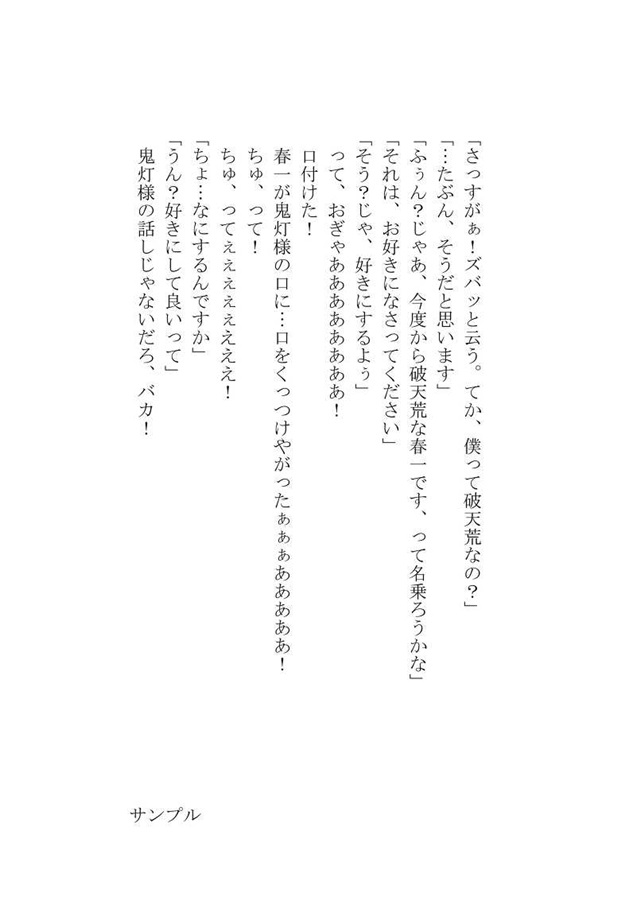 「さっすがぁ！ズバッと云う。てか、僕って破天荒なの？」
「…たぶん、そうだと思います」
「ふぅん？じゃあ、今度から破天荒な春一です、って名乗ろうかな」
「それは、お好きになさってください」
「そう？じゃ、好きにするよぅ」
って、おぎゃあああああああああ！
口付けた！
春一が鬼灯様の口に…口をくっつけやがったぁぁぁああああああ！
ちゅ、って！
ちゅ、ってぇぇぇぇぇえええ！
「ちょ…なにするんですか」
「うん？好きにして良いって」
鬼灯様の話しじゃないだろ、バカ！
サンプル